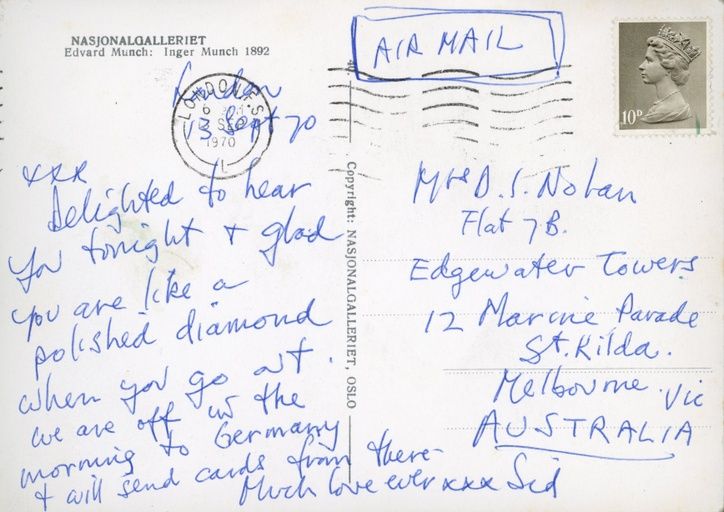 NASJONALGALLERIET
Edvard Munch: Inger Munch 1892
AIR MAIL
10D
LONDON
SEP
1970
London
13 Sept 70
xxx
Delighted to hear
you tonight & glad
you are like a
polished diamond
when you go out.
We are off in the
morning to Germany
& will send cards from there -
Much love ever xxx Sid
Copyright: NASJONALGALLERIET, OSLO
Mrs D. S. Nolan
Flat 7B.
Edgewater Towers
12 Marine Parade
St. Kilda.
Melbourne. Vic
AUSTRALIA